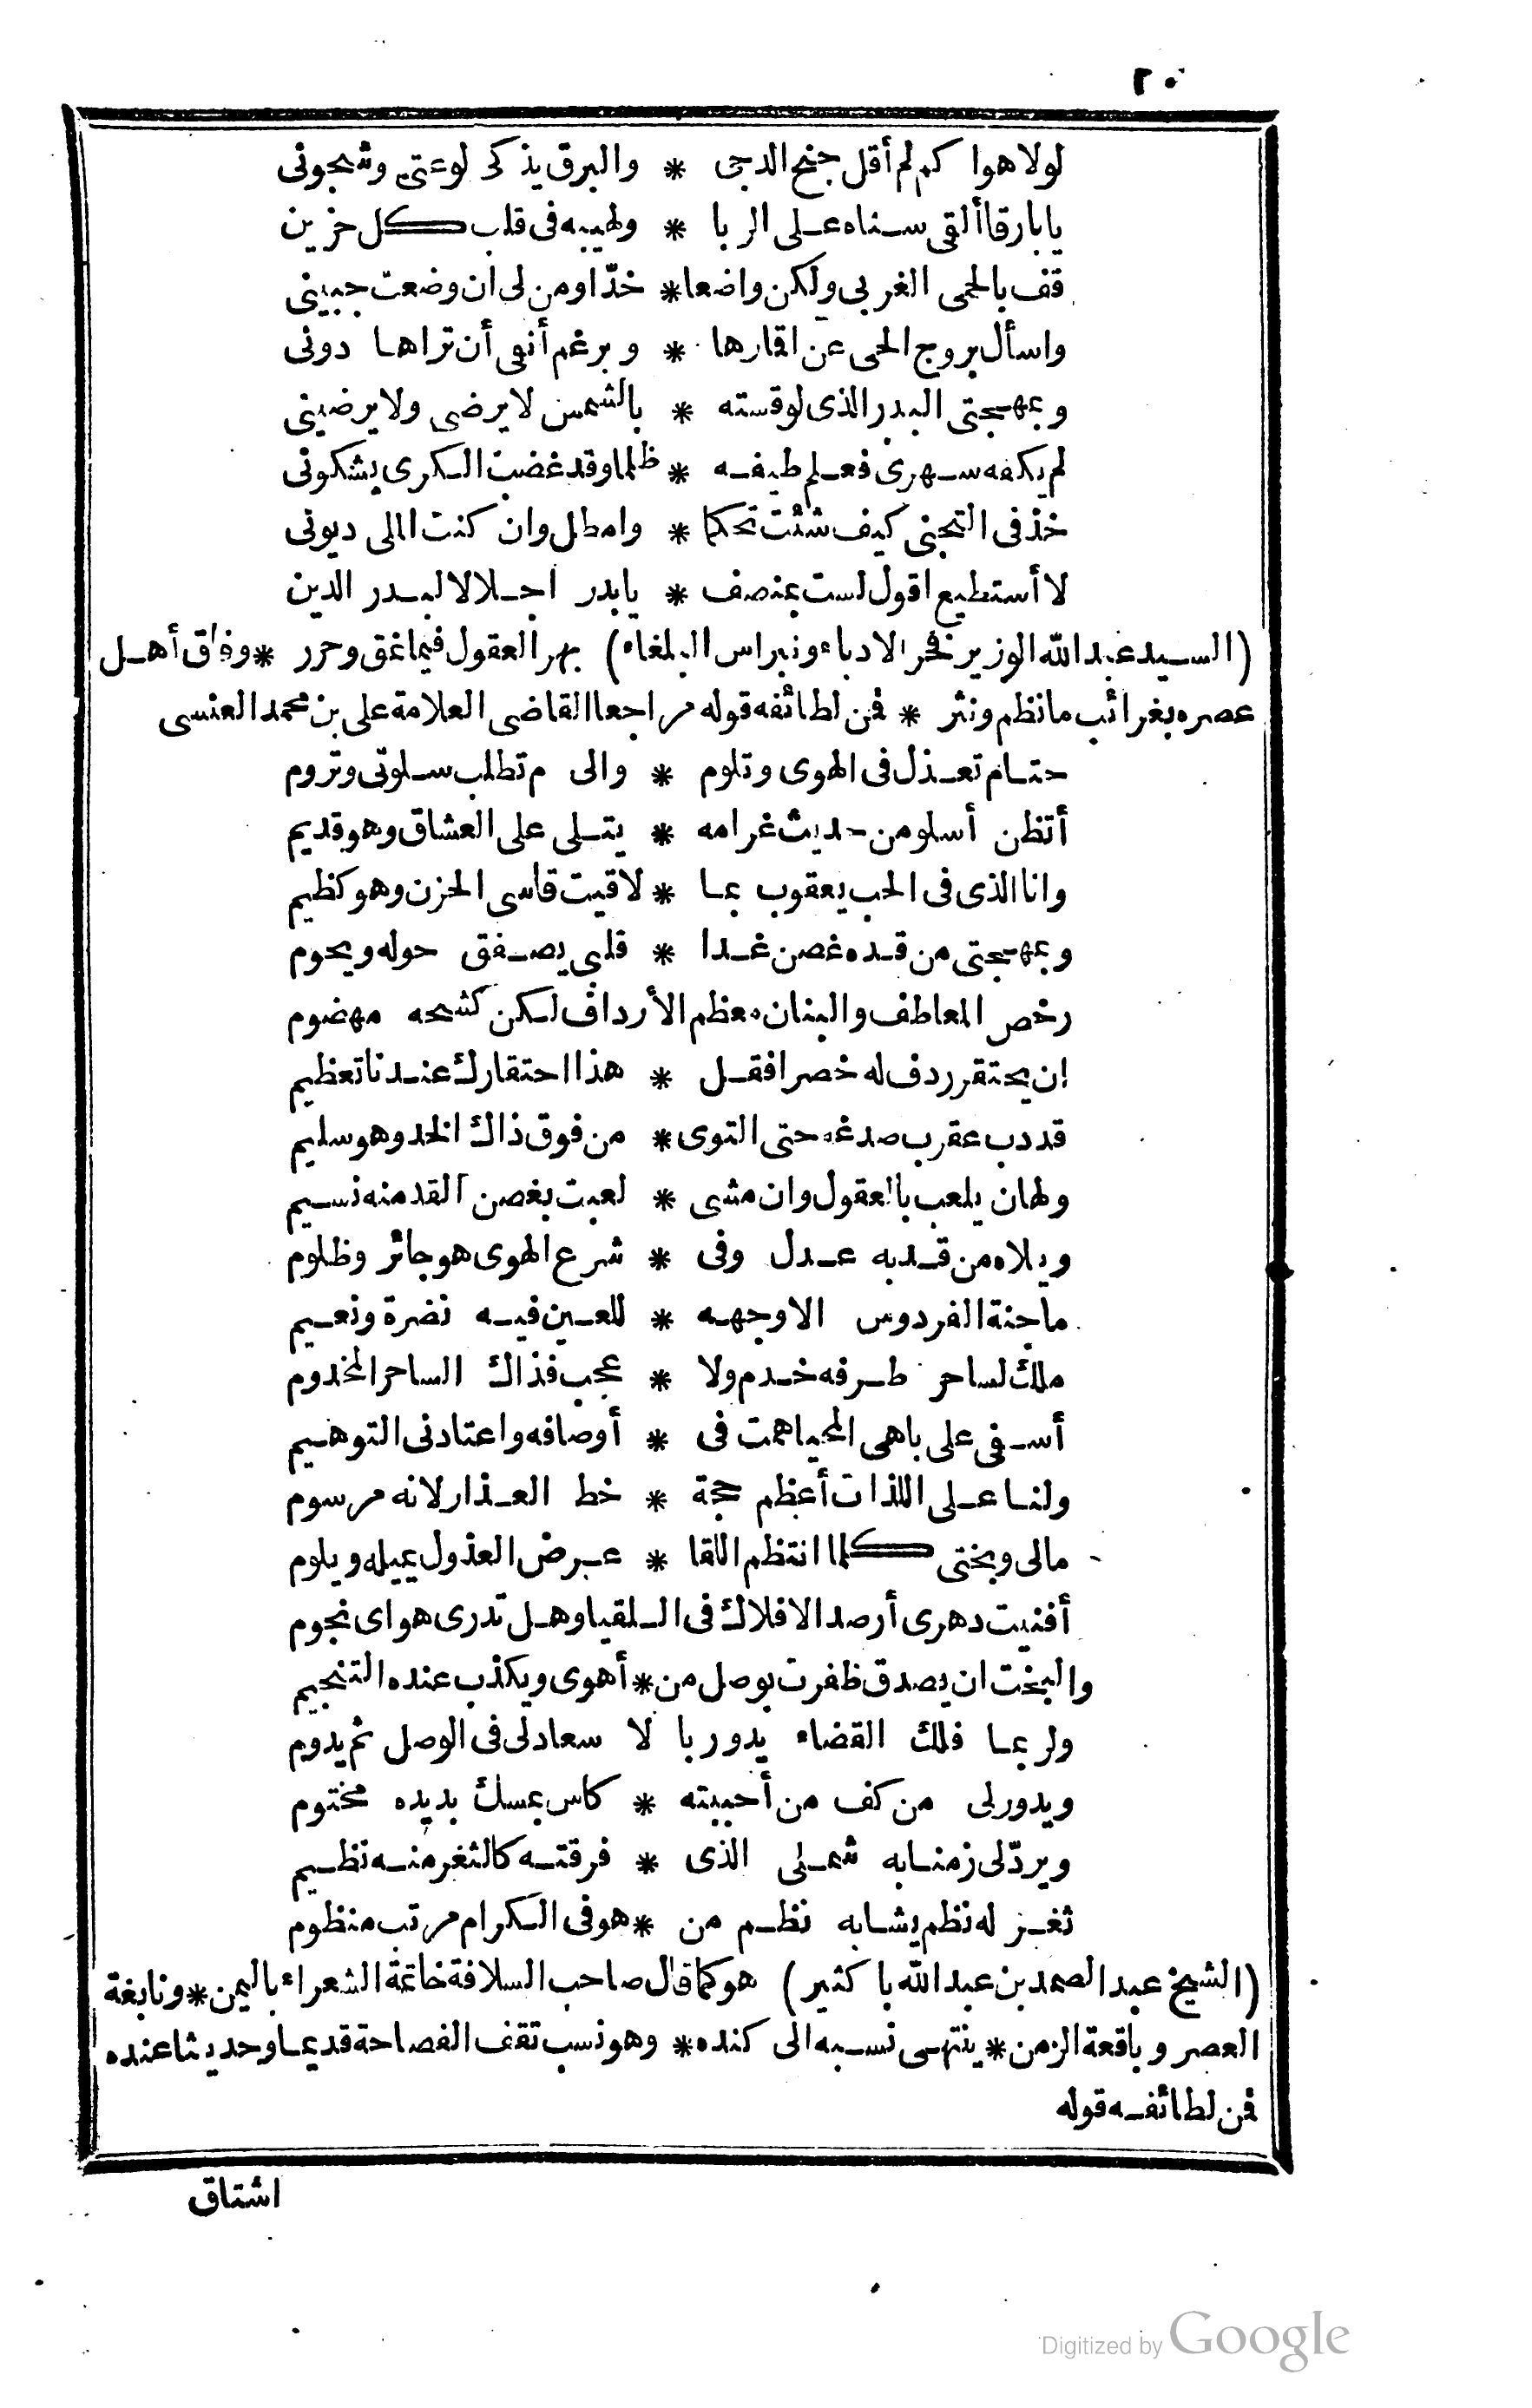 ٢٠
لولا هواكم لم أقل جنح الدجى * والبرق يذكى لوعتى وشجونى
يا بارقا ألقى سناه على الربا * ولهيبه فى قلب كل حزين
قف بالحمى الغربى ولكن واضعا * خدّا ومن لى ان وضعت جبينى
واسأل بروج الحى عن اقارها * وبرغم أنفى أن تراها دونى
وبمهجتى البدر الذى لو قسته * بالشمس لا يرضى ولا يرضينى
لم يكفه سهرى فعلم طيفه * ظلما وقد غضت الكرى يشكونى
خذ فى التجنى كيف شئت تحكما * وامطل وان كنت الملى ديونى
لا أستطيع اقول لست بمنصف * يا بدر اجلالا لبدر الدين
(السيد عبد الله الوزير نخر الادباء ونبراس البلغاء) بهر العقول فيما نمق وحرر * وفاق أهل
عصره بغرائب ما نظم ونثر * فمن لطائفه قوله مراجعا القاضى العلامة على بن محمد العنسى
حتام تعذل فى الهوى وتلوم * والى م تطلب سلوتى وتروم
أتظن أسلو من حديث غرامه * يتلى على العشاق وهو قديم
وانا الذى فى الحب يعقوب بما * لاقيت قاسى الحزن وهو كظيم
وبمهجتى من قده غصن غدا * قلبى يصفق حوله ويحوم
رخص المعاطف والبنان معظم الأرداف لكن كشحه مهضوم
ان يحتقر ردف له خصرا فقل * هذا احتقارك عندنا تعظيم
قد دب عقرب صدغه حتى التوى * من فوق ذاك الخد وهو سليم
ولهان يلعب بالعقول وان مشى * لعبت بغصن القد منه نسيم
ويلاه من قد به عدل وفى * شرع الهوى هو جائر وظلوم
ما جنة الفردوس الا وجهه * للعين فيه نضرة ونعيم
ملك لساحر طرفه خدم ولا * عجب فذاك الساحر المخدوم
أسفى على باهى المحيا همت فى * أوصافه واعتادنى التوهيم
ولنا على اللذات أعظم حجة * خط العذار لانه مرسوم
مالى وبختى كلما انتظم اللقا * عرض العذول يميله ويلوم
أفنيت دهرى أرصد الافلاك فى اللقيا وهل تدرى هواى نجوم
والبخت ان يصدق ظفرت بوصل من * أهوى ويكذب عنده التنجيم
ولربما فلك القضاء يدور بالا سعاد لى فى الوصل ثم يدوم
ويدور لى من كف من أحببته * كاس بمسك يديه مختوم
ويردّ لى زمنا به شملى الذى * فرقته كالثغر منه نظيم
ثغر له نظم يشابه نظم من * هو فى الكرام مرتب منظوم
(الشيخ عبد الصمد بن عبد الله با كثير) هو كما قال صاحب السلافة خاتمة الشعراء باليمن * ونابغة
العصر وباقعة الزمن * ينتهى نسبه الى كنده * وهو نسب تقف الفصاحة قديما وحديثا عنده
فمن لطائفه قوله
اشتاق
Digitized by Google